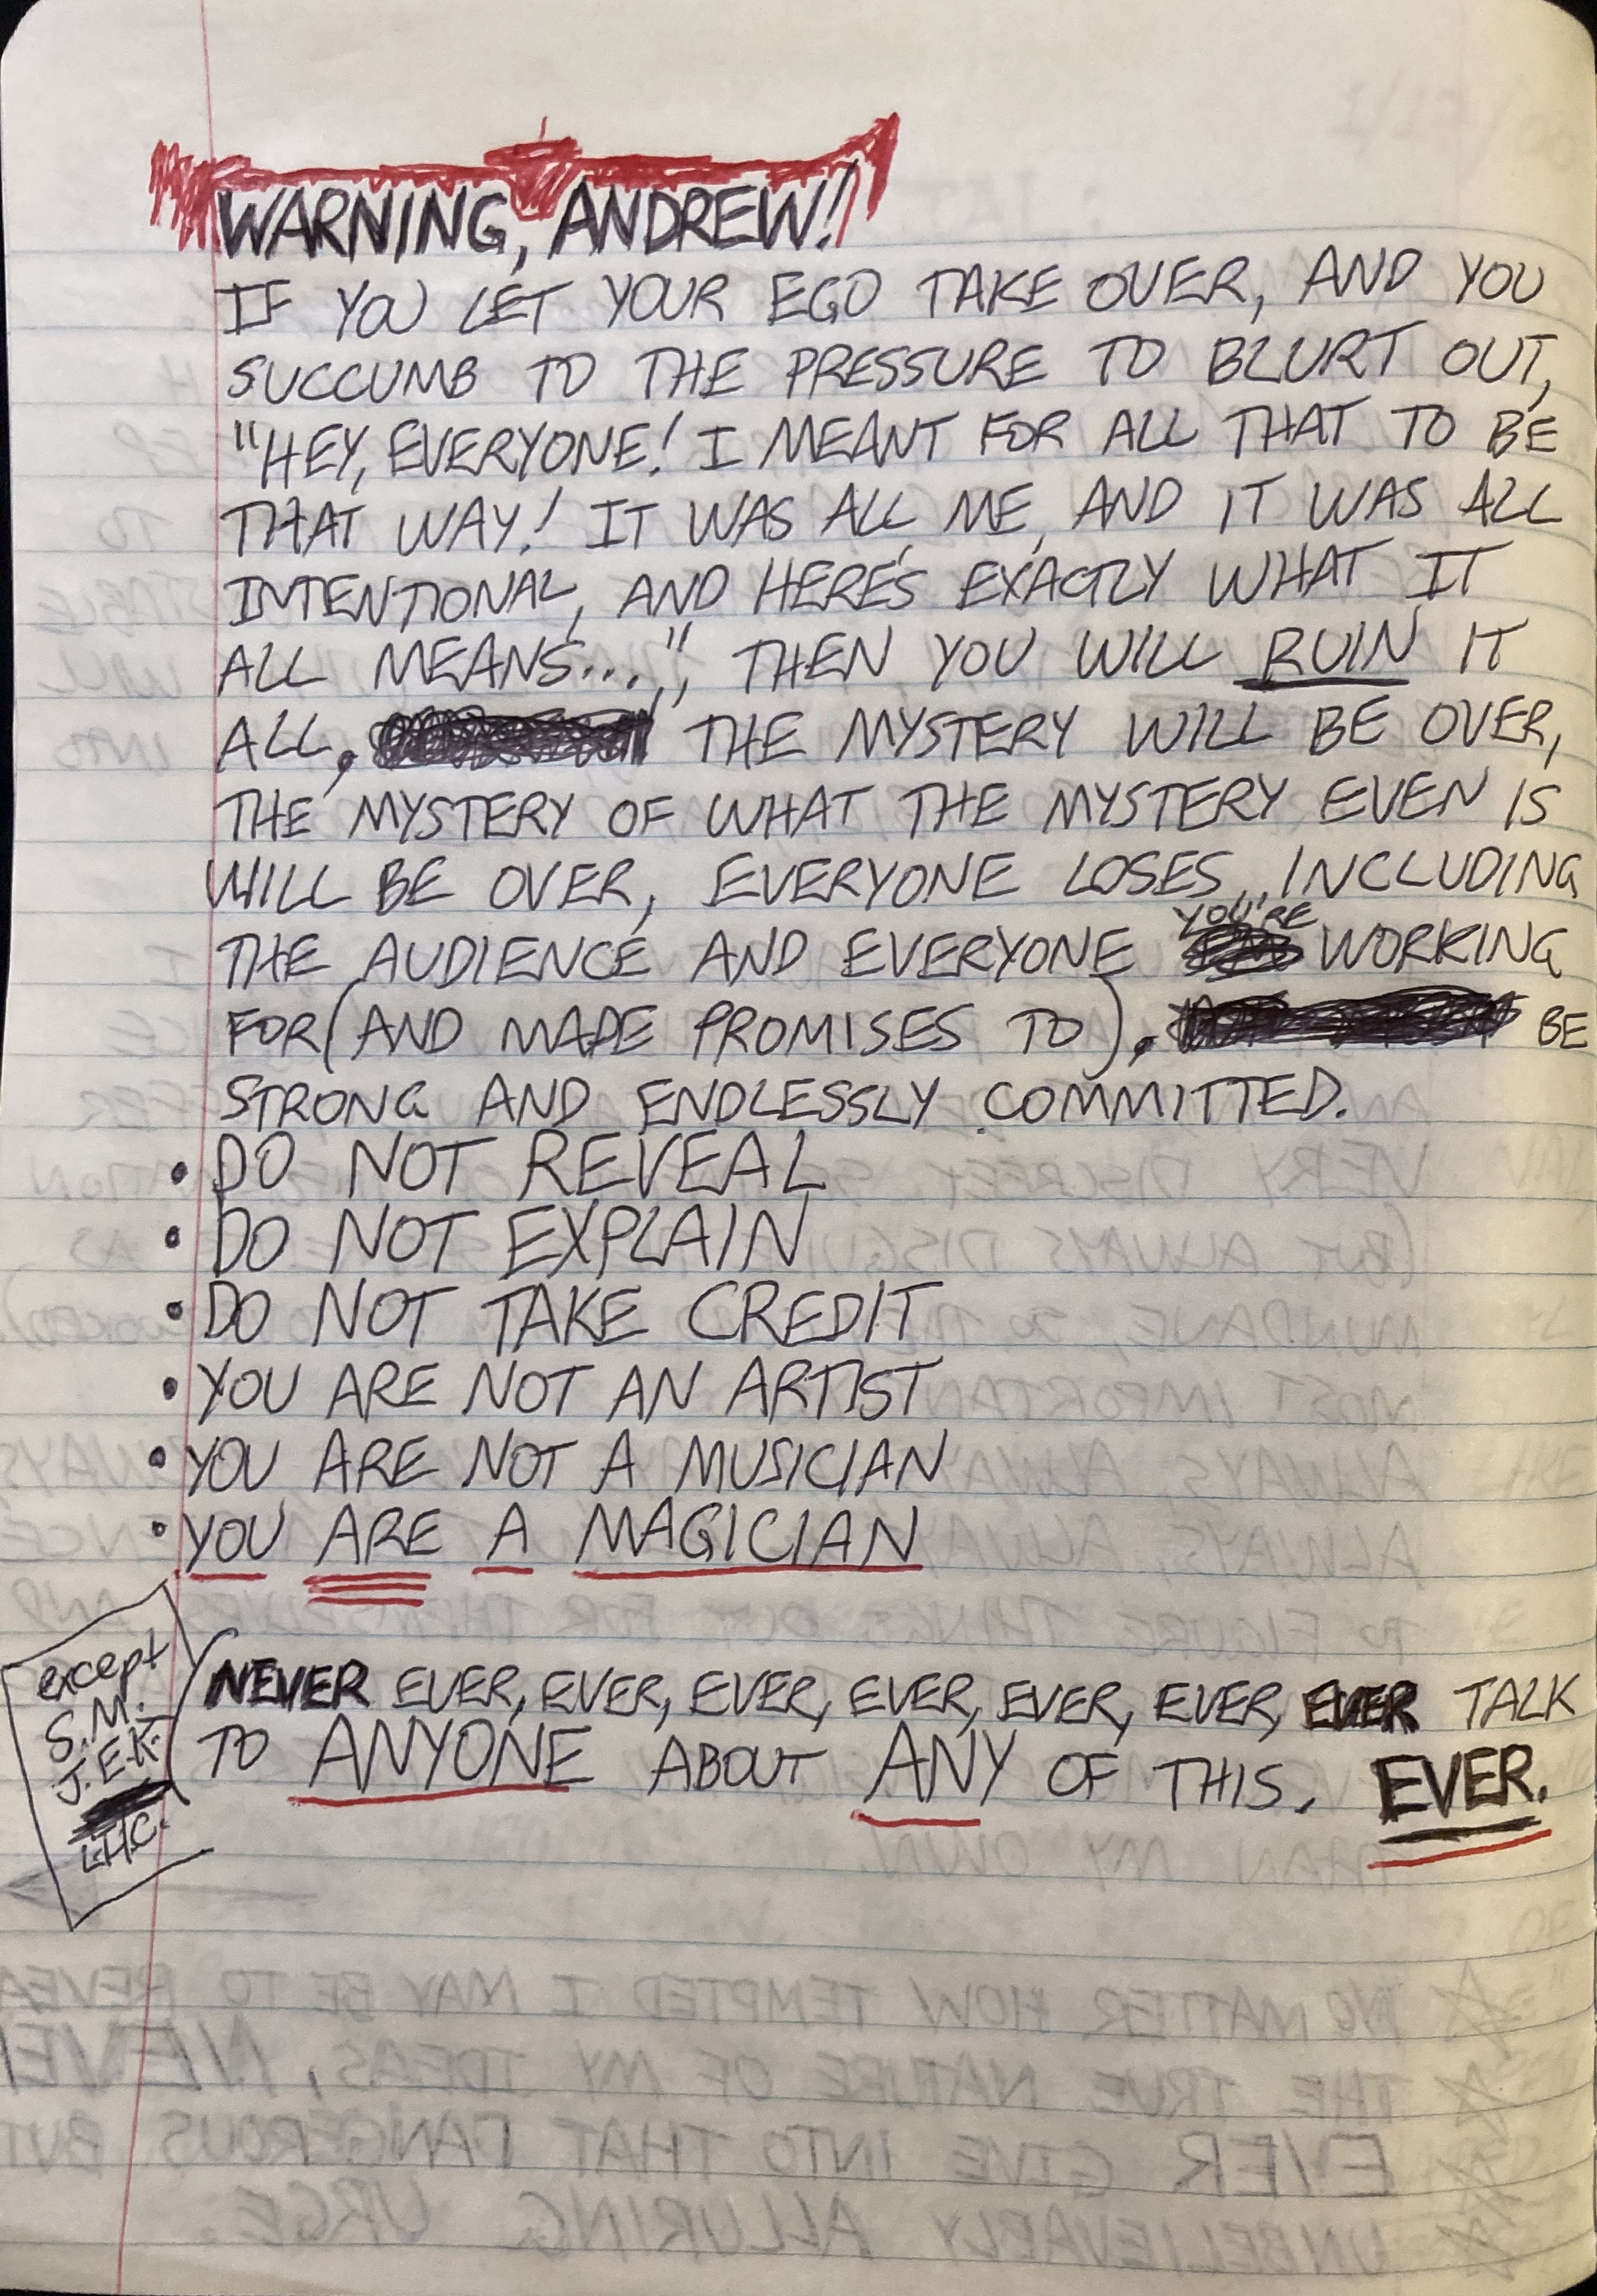 WARNING, ANDREW!
IF YOU LET YOUR EGO TAKE OVER, AND YOU
SUCCUMB TO THE PRESSURE TO BLURT OUT,
"HEY, EVERYONE! I MEANT FOR ALL THAT TO BE
THAT WAY! IT WAS ALL ME, AND IT WAS ALL
INTENTIONAL, AND HERE'S EXACTLY WHAT IT
ALL MEANS...", THEN YOU WILL RUIN IT
ALL. THE MYSTERY WILL BE OVER,
THE MYSTERY OF WHAT THE MYSTERY EVEN IS
WILL BE OVER, EVERYONE LOSES, INCLUDING
THE AUDIENCE AND EVERYONE YOU'RE WORKING
FOR (AND MADE PROMISES TO). BE
STRONG AND ENDLESSLY COMMITTED.
• DO NOT REVEAL
• DO NOT EXPLAIN
• DO NOT TAKE CREDIT
• YOU ARE NOT AN ARTIST
• YOU ARE NOT A MUSICIAN
• YOU ARE A MAGICIAN
except
S.M.
J.E.K.
L.H.C.
NEVER EVER, EVER, EVER, EVER, EVER, EVER, EVER TALK
TO ANYONE ABOUT ANY OF THIS. EVER.
NO MATTER HOW TEMPTED I MAY BE TO REVEA
THE TRUE NATURE OF MY IDEAS, NEVE
EVER GIVE INTO THAT DANGEROUS BUT
UNBELIEVABLY ALLURING URGE.